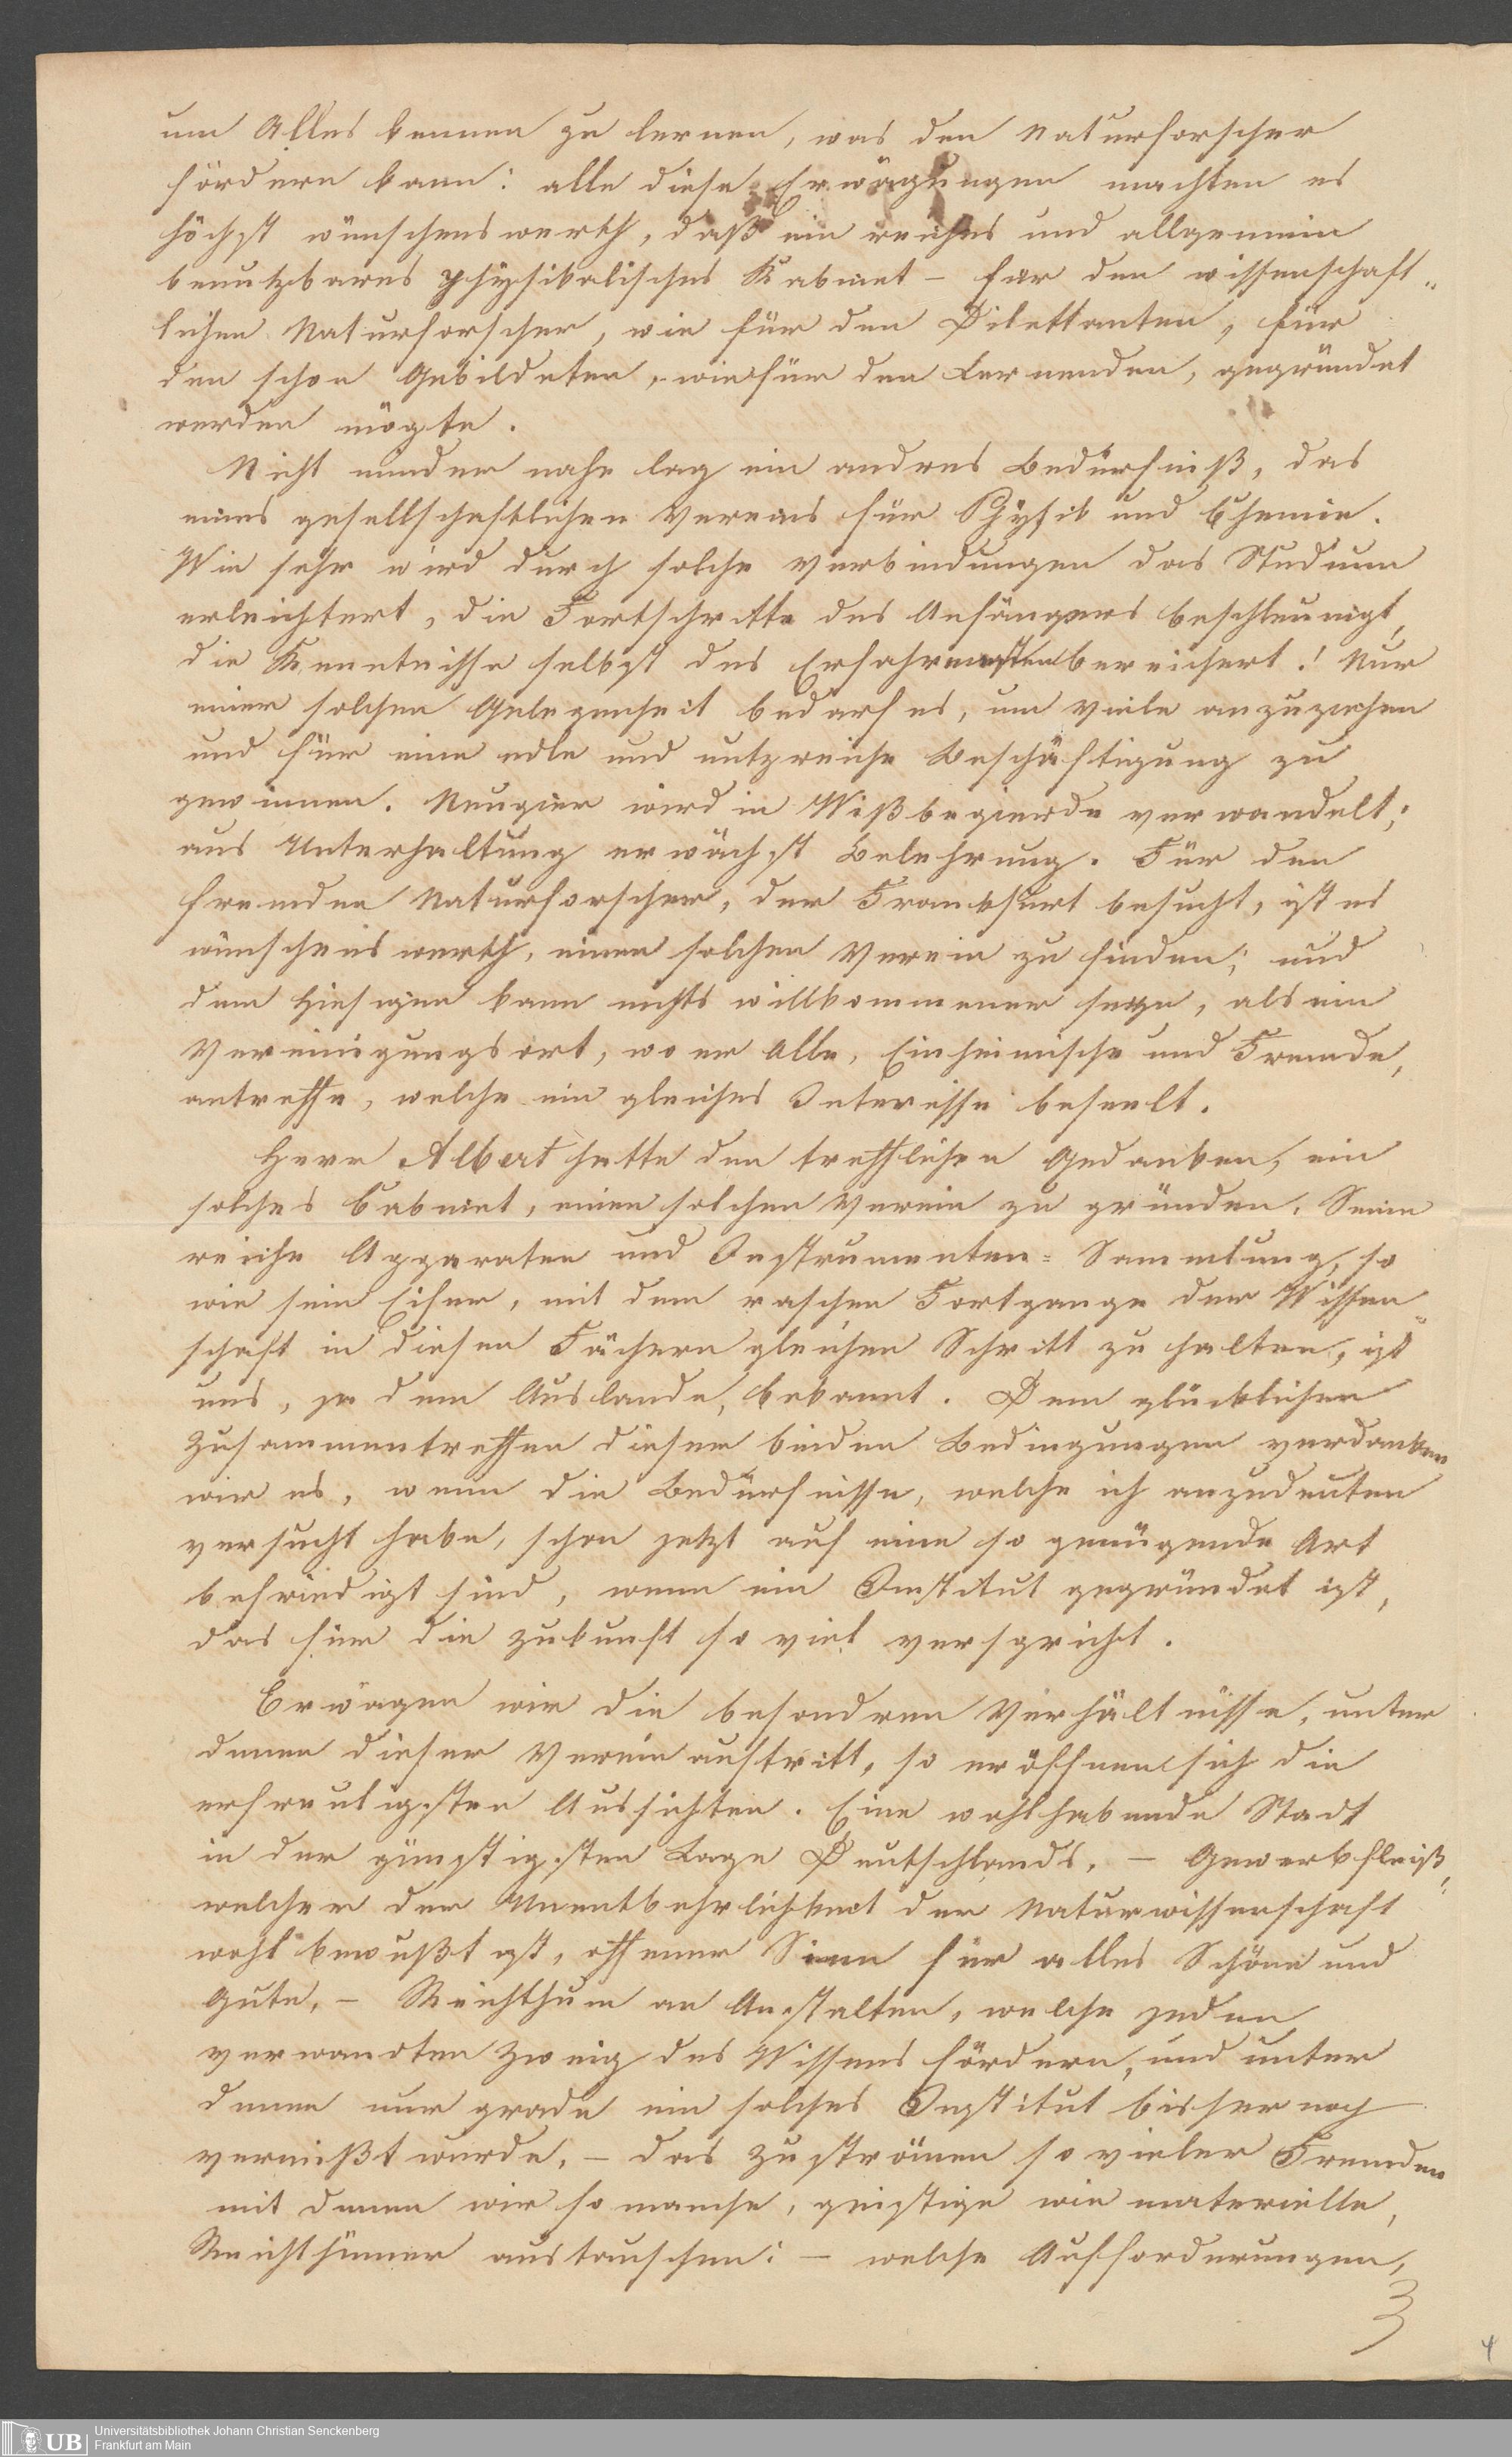 um Alles kennen zu lernen, was den Naturforscher
fördern kann: alle diese Erwägungen machten es
höchst wünschenswerth, daß ein reiches und allgemein
benutzbares physikalisches Kabinet – für den wissenschaft„
lichen Naturforscher, wie für den Dilettanten, für
den schon Gebildeten, wie für den Lernenden, gegründet
werden mögte.
Nicht minder nahe lag ein andres Bedürfniß, das
eines gesellschaftlichen Vereins für Physik und Chemie.
Wie sehr wird durch solche Verbindungen das Studium
erleichtert, die Fortschritte des Anfängers beschleunigt,
die Kenntnisse selbst des Erfahrensten bereichert! Nur
einer solchen Gelegenheit bedarf es, um Viele anzuziehen
und für eine edle und nutzreiche Beschäftigung zu
gewinnen. Neugier wird in Wißbegierde verwandelt;
aus Unterhaltung erwächst Belehrung. Für den
fremden Naturforscher, der Frankfurt besucht, ist es
wünschenswerth, einen solchen Verein zu finden; und
dem Hiesigen kann nichts willkommener seyn, als ein
Vereinigungsort, wo er Alle, Einheimische und Fremde,
antreffe, welche ein gleiches Interesse beseelt.
Herr Albert hatte den trefflichen Gedanken, ein
solches Cabinet, einen solchen Verein zu gründen. Seine
reiche Apparaten und Instrumenten= Sammlung, so
wie sein Eifer, mit dem raschen Fortgange der Wissen„
schaft in diesen Fächern gleichen Schritt zu halten, ist
uns, ja dem Auslande, bekannt. Dem glücklichen
Zusammentreffen dieser beiden Bedingungen verdanken
wir es, wenn die Bedürfnisse, welche ich anzudeuten
versucht habe, schon jetzt auf eine so genügende Art
befriedigt sind, wenn ein Institut gegründet ist,
das für die Zukunft so viel verspricht.
Erwägen wir die besondren Verhältnisse, unter
denen dieser Verein auftritt, so eröffnen sich die
erfreuligsten Aussichten. Eine wohlhabende Stadt
in der günstigsten Lage Deutschlands, – Gewerbfleiß,
welcher der Unentbehrlichkeit der Naturwissenschaft
wohl bewußt ist, offener Sinn für alles Schöne und
Gute, – Reichthum an Anstalten, welche jeden
verwandten Zweig des Wissens fördern, und unter
denen nur grade ein solches Institut bisher noch
vermißt wurde, – das Zuströmen so vieler Fremden
mit denen wir so manche, geistige wie materielle,
Reichthümer austauschen: – welche Aufforderungen,
3
4
UB Universitätsbibliothek Johann Christian Senckenberg
Frankfurt am Main